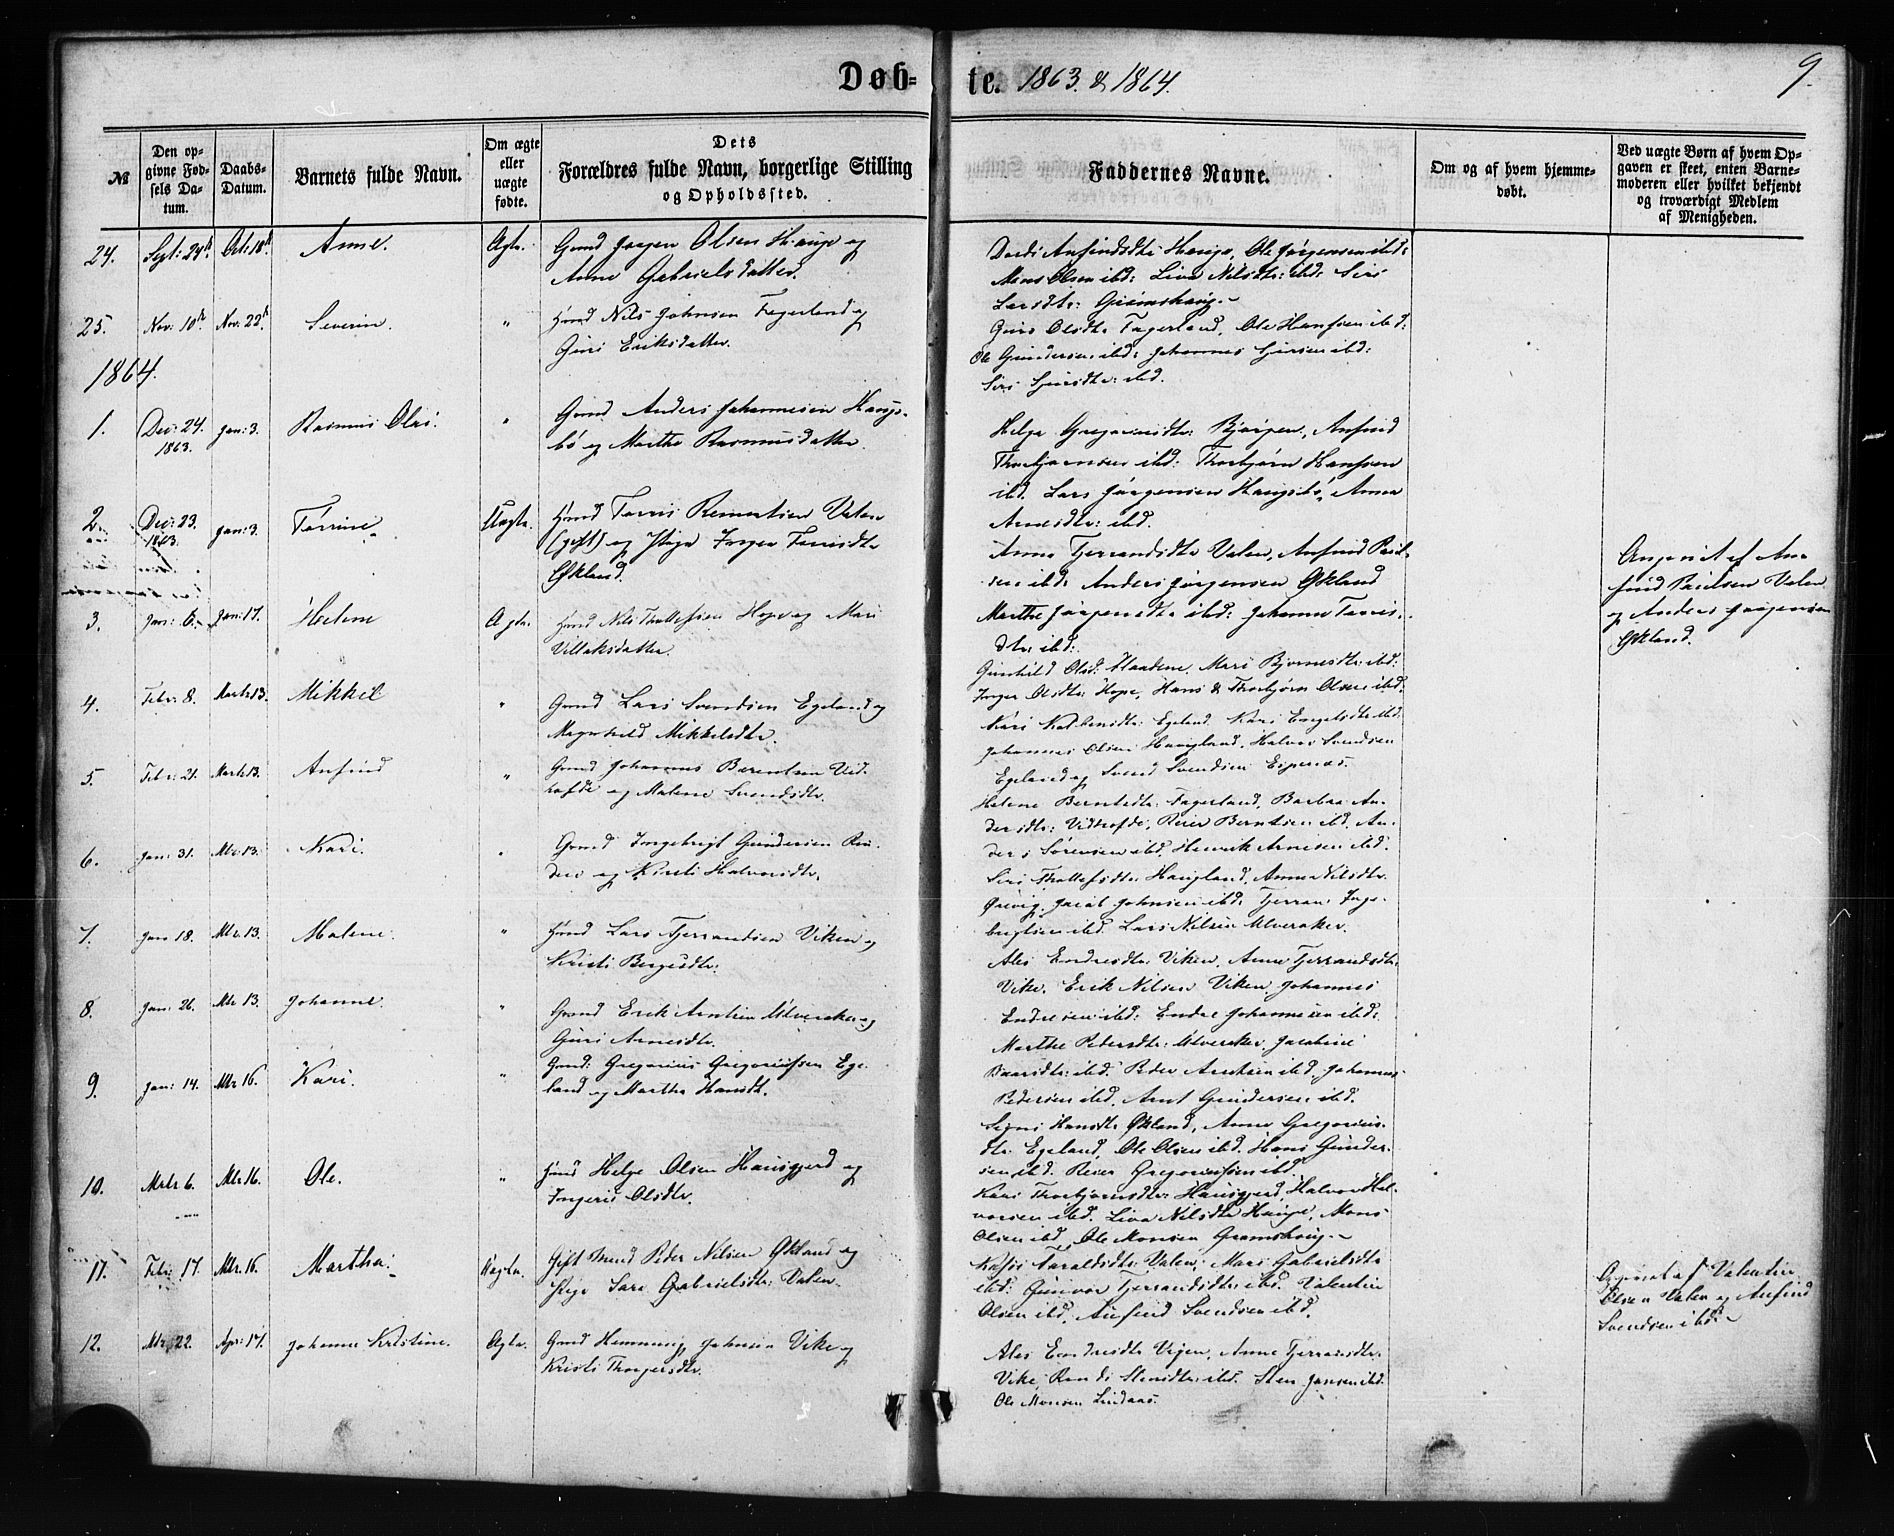 Døb-
te. 1863. & 1864.
9.
№
Den op-
givne Fød-
sels Da-
tum.
Daabs-
Datum.
Barnets fulde Navn.
Om ægte
eller
uægte
fødte.
Dets
Forældres fulde Navn, borgerlige Stilling
og Opholdssted.
Faddernes Navne.
Om og af hvem hjemme-
døbt.
Ved uægte Børn af hvem Op-
gaven er skeet, enten Barne-
moderen eller hvilket bekjendt
og troværdigt Medlem
af Menigheden.
24. Sept: 24de Oct: 18de Anne. Ægte. Gmd Jørgen Olsen Hauge og
Anne Gabrielsdatter.
Anfindsdtr Hauge, Ole Jørgensen ibd:
Mons Olsen ibd: Liva Nilsdtr: ibd: Siri
Larsdtr: Grimshaug.
25. Nov: 10de Nov: 22de Severin. " Hmd Nils Johnsen Fagerland og
Guri Eriksdatter.
Guro Olsdtr Fagerland, Ole Hansen ibd:
Ole Gundersen ibd: Johannes Sjursen ibd:
Siri Sjursdtr: ibd.
1864.
1. Dec: 24. 1863. Jan: 3. Rasmus Olai. " Gmd Anders Johannesen Haugs-
bø og Marthe Rasmusdatter.
Helga Gregoriusdtr: Bjørgen, Anfind
Thorbjørnsen ibd: Thorbjørn Hansen
ibd. Lars Jørgensen Haugsbø, Anna
Arnesdtr: ibd.
2. Dec: 23. 1863. Jan: 3. Tørrine. Uægte. Hmd Tørris Valen
(gift) og Pige Inger Tørrisdtr
Økland.
Anna Tjerrandsdtr Valen, Anfind Paul-
sen ibd: Anders Jørgensen Økland
Marthe Jørgensdtr ibd: Johanna Tørris-
dtr: ibd:
Angivet af An-
find Paulsen Valen
og Anders Jørgensen
Økland.
3. Jan: 6. Jan: 17. Helene Ægte. Hmd Nils Thollefsen Hope og Mari
Villaksdatter.
Gunhild Olsd: Haadene, Mari Bjørnesdtr: ibd:
Inger Olsdtr: Hope, Hans & Thorbjørn Olsen ibd:
4. Febr: 8. Marts 13. Mikkel " Gmd Lars Svendsen Egeland og
Magnhild Mikkelsdtr.
Kari Egeland. Kari Engelsdtr ibd.
Johannes Olsen Haugland, Halvor Svendsen
Egeland og Svend Svendsen Espenæs.
5. Febr: 21. Marts 13. Anfind " Gmd Johannes Berentsen Vid-
hofde og Malene Svendsdtr.
Helene Berntsdtr: Fagerland, Barbra An-
dersdtr: Vidhofde, Reier Berntsen ibd. An-
ders Sørensen ibd. Henrik Arnesen ibd.
6. Jan: 31. Mts: 13. Kari. " Gmd Ingebrigt Gundersen
og Kirsti Halvorsdtr.
Siri Thollefsdtr: Haugland, Anna Nilsdtr
Jacob Johnsen ibd: Tjerran Inge-
brigtsen ibd. Lars Nilsen Ulveraker.
7. Jan 18. Mts. 13. Malene. " Hmd Lars Tjerrandsen Viken og
Kristi Børgesdtr:
Ales Endresdtr: Viken, Anna Tjerrandsdtr:
Vike. Erik Nilsen Viken, Johannes
Endresen ibd: Endre Johannesen ibd:
8. Jan: 26. Mts 13. Johanne. " Gmd Erik Arntsen Ulveraker og
Guri Arnesdtr.
Marthe Pedersdtr: Ulveraker, Jacobine
Baarsdtr: ibd. Peder Arntsen ibd. Johannes
Pedersen ibd. Arnt Gundersen ibd.
9. Jan: 14. Mts 16. Kari. " Gmd: Gregorius Gregoriussen Ege-
land og Martha Hansdtr.
Signi Hansdtr Økland, Anna Gregorius-
dtr. Egeland, Ole Olsen ibd. Hans Gunder-
sen ibd. Reier Gregoriussen ibd.
10. Mrts 6. Mts 16. Ole. " Hmd Helge Olsen Hausgjerd og
Ingeri Olsdtr.
Kari Thorbjørnsdtr: Hausgjerd, Halvor Hal-
vorsen ibd. Liva Nilsdtr Hauge, Mons
Olsen ibd, Ole Monsen Grimshaug.
11. Febr: 17. Mts. 16. Martha. Uægte. Gift Mand Peder Nilsen Økland og
Pige Sara Gabrielsdtr: Valen.
Haraldsdtr: Valen, Mari Gabrielsdtr
ibd: Gunvor Tjerrandsdtr: ibd. Valentin
Olsen ibd, Anfind Svendsen ibd.
Opgivet af Valentin
Olsen Valen og Anfind
Svendsen ibd.
12. Mts 22. Apr: 17. Johanne Kristine. Ægte. Gmd Hemming Johnsen Vike og
Kristi Thorgersdtr.
Ales Endresdtr Vigen, Anne Tjerrandsdtr:
Vike, Stensdtr: ibd. Sten Jansen ibd.
Ole Monsen Lindaas.